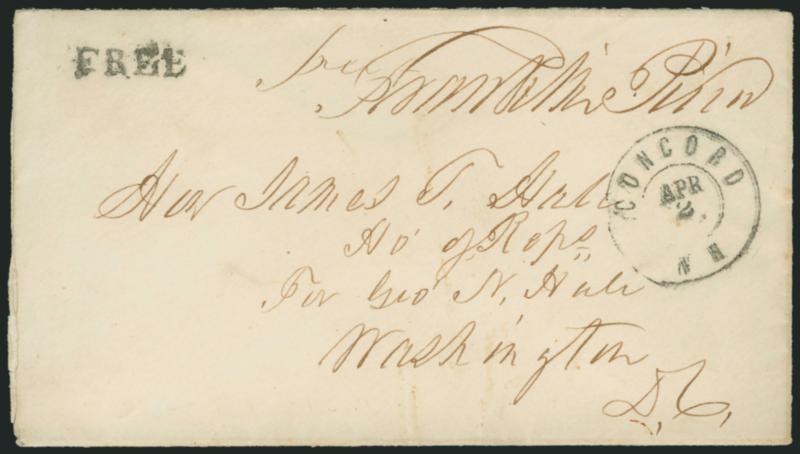 FREE
free
Franklin Pierce
Hon James T. Hale
Ho of Reps
For Geo N. Hale
Washington
D.C.
CONCORD
APR
2
N H